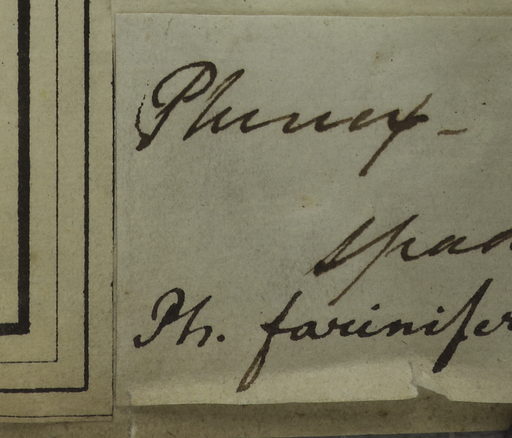 Phenex -
spad
Ph. farinifer